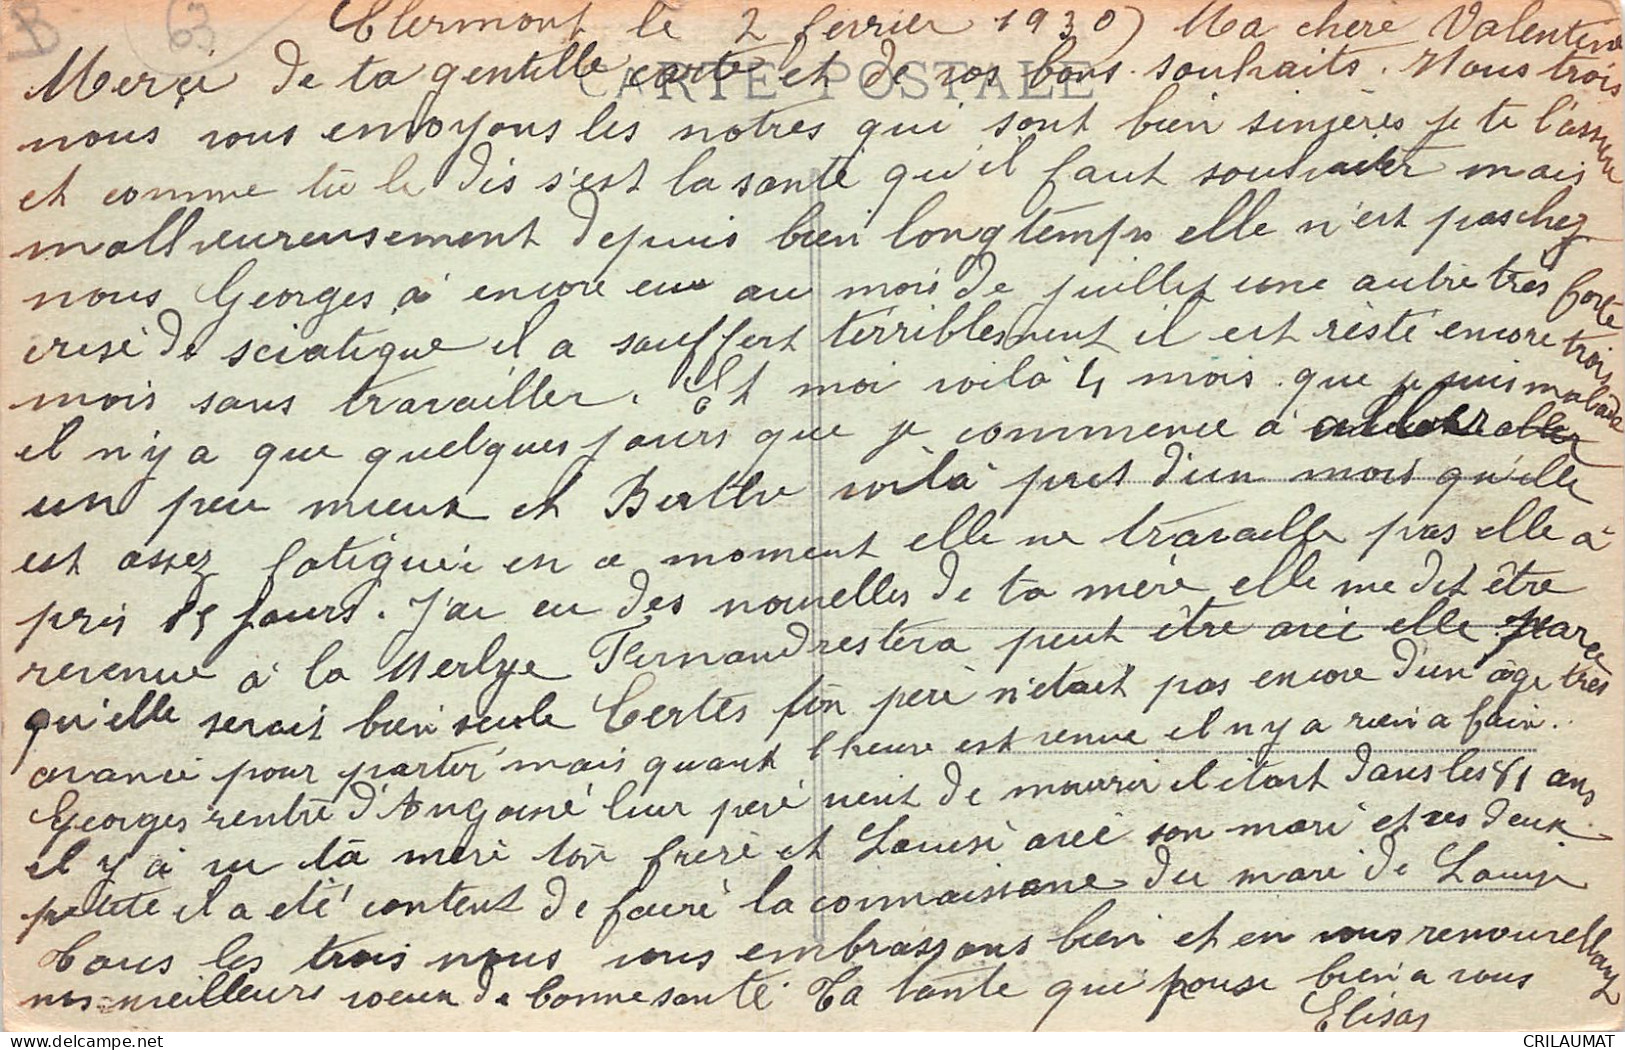 Clermont le 2 ferrier 1930) Ma chere Valentine
CARTE POSTALE
Merçi de ta gentille carte et de vos bons souhaits. Nous trois
nous vous envoyons les notres qui sont bien sinçères je te l'assure
et comme tu le dis s'est la santé qu'il faut souhaiter mais
malheureusement depuis bien longtemps elle n'est pas chez
nous Georges à encore eu au mois de juillet une autre tres forte
crise de sciatique il a souffert terriblesment il est resté encore trois
mois sans travailler. Et moi voilà 4 mois que je suis malade
il n'y a que quelques jours que je commence à aller
un peu mieux et Berthe voilà pres d'un mois qu'elle
est assez fatiguée en ce moment elle ne travaille pas elle à
pris 15 jours. J'ai eu des nouvelles de ta mère elle me dit être
revenue à la Merlye Fernand restera peut être avec elle parce
qu'elle serait bien seule Certes ton pere n'etait pas encore d'un age très
avancé pour partir mais quant l'heure est venue il n'y a rien a fair.
Georges rentre d'Angoine leur pere vient de mourir il etait dans les 81 ans
il y à vu ta mere ton frere et Louise avec son mari et ses deux
petite il a eté content de faire la connaissance du mari de Louise
Tous les trois nous vous embrassons bien et en vous renouvellant
nos meilleurs voeux de bonne santé Ta tante qui pense bien a vous
Elisa
63
CRILAUMAT